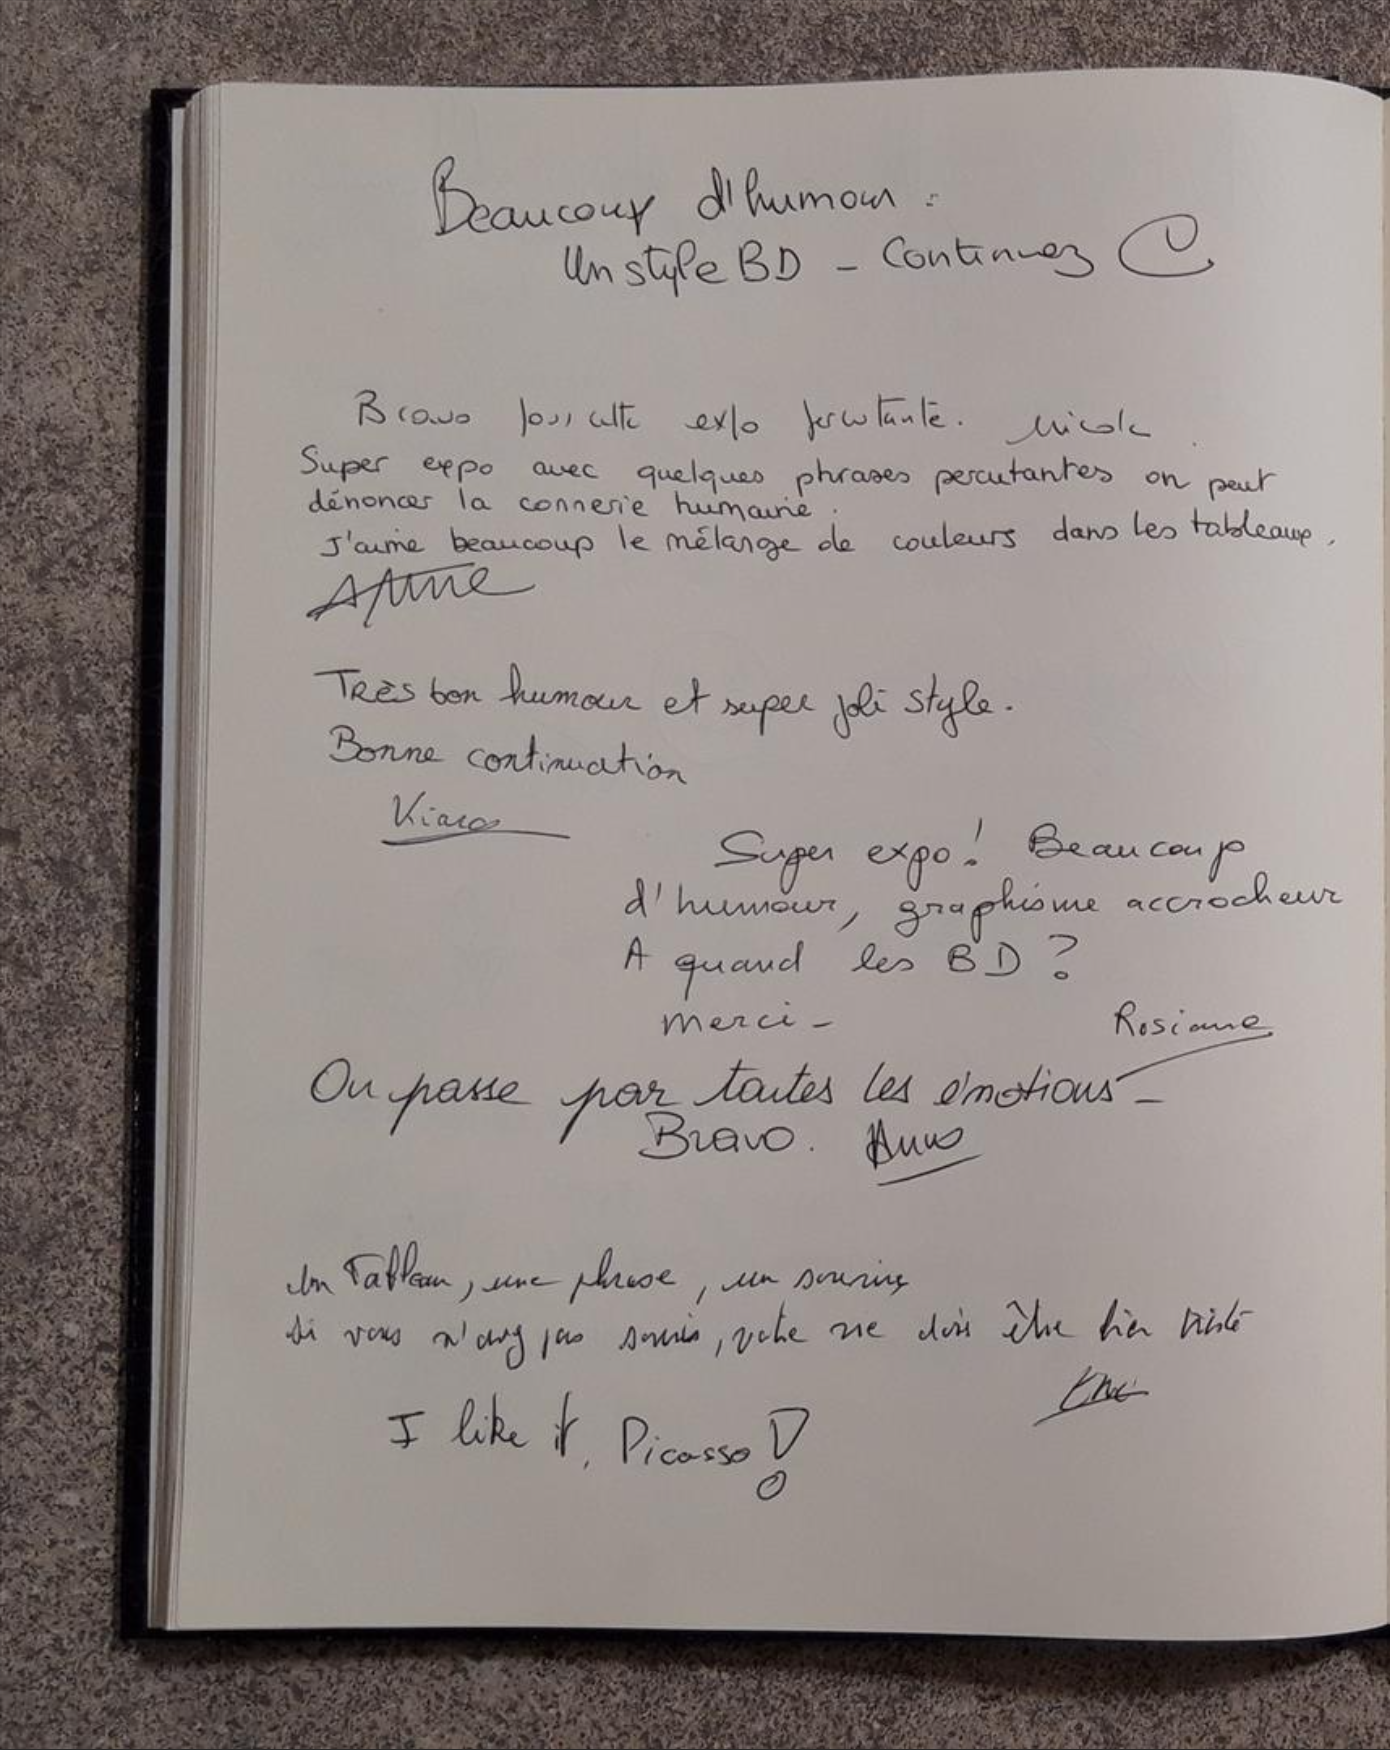 Beaucoup d'humour :
Un style BD - Continuez
Bravo pour cette expo percutante. Nicole
Super expo avec quelques phrases percutantes on peut
dénoncer la connerie humaine.
J'aime beaucoup le mélange de couleurs dans les tableaux.
Anne
Très bon humour et super joli style.
Bonne continuation
Kiara
Super expo! Beaucoup
d'humour, graphisme accrocheur
A quand les BD ?
Merci -
Rosiane
On passe par toutes les émotions -
Bravo.
Un Tableau, une phrase, un sourire,
Si vous n'avez pas souris, votre vie dois être bien triste
I like it, Picasso !